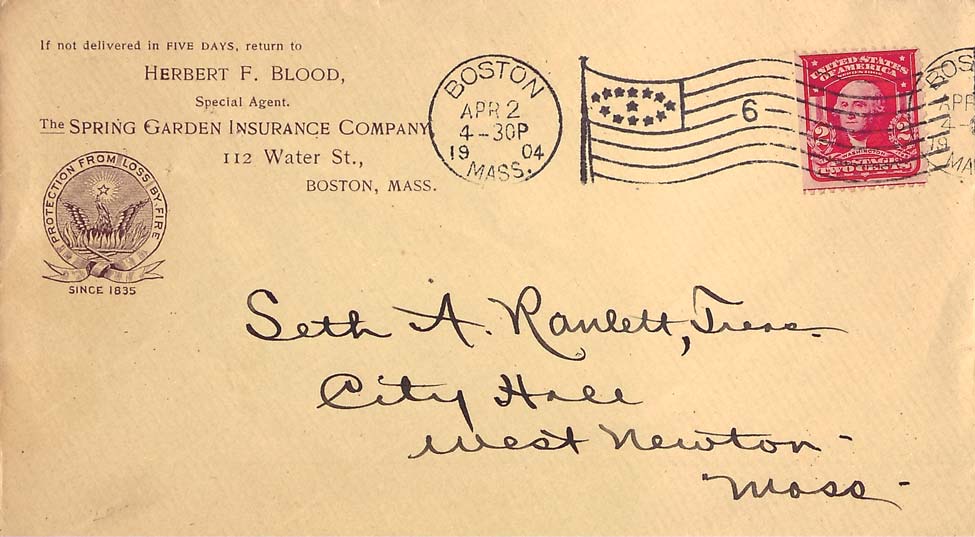 If not delivered in FIVE DAYS, return to
HERBERT F. BLOOD,
Special Agent.
The SPRING GARDEN INSURANCE COMPANY
112 Water St.,
BOSTON, MASS.
PROTECTION FROM LOSS BY FIRE
SINCE 1835
BOSTON
APR 2
4-30P
19 04
MASS.
6
UNITED STATES
OF AMERICA
2 2
WASHINGTON
POSTAGE
TWO CENTS
BOS
APR
4-
19
MA
Seth A. Ranlett, Treas.
City Hall
West Newton-
Mass-